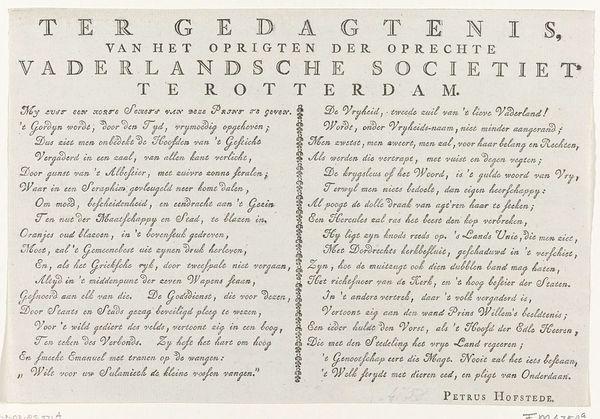 TER GEDAGTENIS,
VAN HET OPRIGTEN DER OPRECHTE
VADERLANDSCHE SOCIETIET
TE ROTTERDAM.
My lust een korte Schets van deze Prent te geven.
't Gordyn wordt, door den Tyd, vrymoedig opgeheven;
Dus ziet men onbedekt de Hoofden van 't Gesticht
Vergaderd in een zaal, van allen kant verlicht,
Door gunst van 't Albestier, met zuivre zonne stralen;
Waar in een Seraphim gevleugeld neer komt dalen,
Om moed, bescheidenheid, en eendracht aan 't Gezin
Ten nut der Maatschappy en Stad, te blazen in.
Oranjes oud blazoen, in 't bovenstuk gedreven,
Moet, zal 't Gemeenebest uit zynen druk herleven,
En, als het Grieksche ryk, door tweespalt niet vergaan,
Altyd in 't middenpunt der zeven Wapens staan,
Gesnoerd aan elk van die. De Godsdienst, die voor dezen,
Door Staats en Stads gezag beveiligd pleeg te wezen,
Voor 't wild gediert des velds, vertoont zig in een boog,
Ten teken des Verbonds. Zy heft het hart om hoog
En smeekt Emanuel met tranen op de wangen:
„ Wilt voor uw Sulamith de kleine vossen vangen."
De Vryheid, tweede zuil van 't lieve Vaderland!
Wordt, onder Vryheids-naam, niet minder aangerand;
Men zwetst, men zweert, men zal, voor haar belang en Rechten,
Als werden die vertrapt, met vuist en degen vegten;
De krygsleus of het Woord, is 't gulde woord van Vry,
Terwyl men niets bedoelt, dan eigen heerschappy:
Al poogt de dolle draak van agt'ren haar te steken;
Een Hercules zal ras het beest den kop verbreken,
Hy ligt zyn knods reeds op. 's Lands Unie, die men ziet,
Met Dordrechts kerkbesluit, geschaduwd in 't verschiet,
Zyn, hoe de muitzugt ook dien dubblen band mag haten,
Het richtsnoer van de Kerk, en 't hoog bestier der Staten.
In 't andere vertrek, daar 't volk vergaderd is,
Vertoont zig aan den wand Prins Willem's beeldtenis;
Een ieder huldt den Vorst, als 't Hoofd der Edle Heeren,
Die met den Stedeling het vrye Land regeeren;
't Genootschap eert die Magt. Nooit zal het iets bestaan,
't Welk strydt met dieren eed, en pligt van Onderdaan.
PETRUS HOFSTEDE.